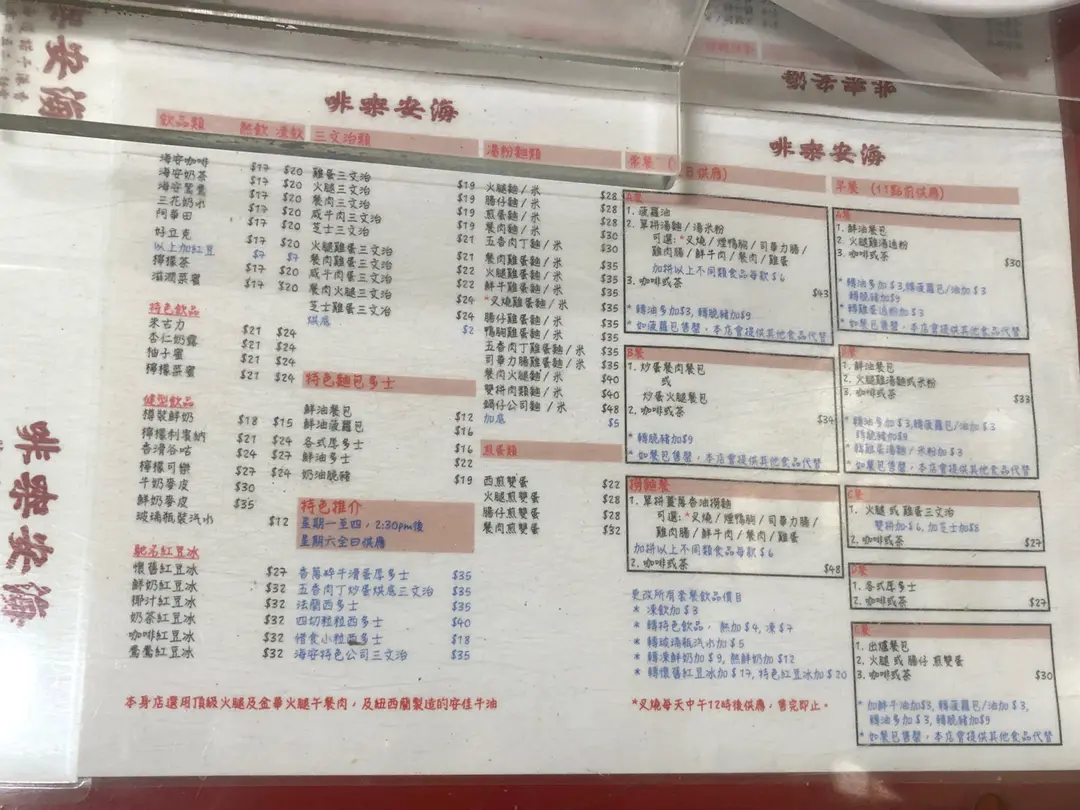 啡樂安海
飲品類 熱飲 凍飲
海安咖啡 $17 $20
海安奶茶 $17 $20
海安鴛鴦 $17 $20
三花奶水 $17 $20
阿華田 $17 $20
好立克 $17 $20
以上加紅豆 $7 $7
檸檬茶 $17 $20
滋潤菜蜜 $17 $20
特色飲品
朱古力 $21 $24
杏仁奶露 $21 $24
柚子蜜 $21 $24
檸檬菜蜜 $21 $24
健型飲品
樽裝鮮奶 $18 $15
檸檬利賓納 $21 $24
香滑谷咕 $24 $27
檸檬可樂 $27 $24
牛奶麥皮 $30
鮮奶麥皮 $35
玻璃瓶裝汽水 $12
馳名紅豆冰
懷舊紅豆冰 $27
鮮奶紅豆冰 $32
椰汁紅豆冰 $32
奶茶紅豆冰 $32
咖啡紅豆冰 $32
鴛鴦紅豆冰 $32
三文治類
雞蛋三文治 $19
火腿三文治 $19
餐肉三文治 $19
咸牛肉三文治 $19
火腿雞蛋三文治 $21
餐肉雞蛋三文治 $21
咸牛肉蛋三文治 $22
餐肉火腿三文治 $22
芝士雞蛋三文治 $24
烘底 $2
特色麵包多士
鮮油餐包 $12
鮮油菠蘿包 $16
各式厚多士 $16
鮮油多士 $22
奶油脆豬 $19
特色推介
星期一至四，2:30pm後
星期六全日供應
香蔥碎牛滑蛋厚多士 $35
五香肉丁炒蛋烘底三文治 $35
法蘭西多士 $35
四切粒粒西多士 $40
惜食小粒西多士 $18
海安特色公司三文治 $35
湯粉麵類
火腿麵/米 $28
腸仔麵/米 $28
煎蛋麵/米 $28
餐肉麵/米 $30
五香肉丁麵/米 $30
餐肉雞蛋麵/米 $35
火腿雞蛋麵/米 $35
鮮牛雞蛋麵/米 $35
*叉燒雞蛋麵/米 $35
腸仔雞蛋麵/米 $35
鴨胸雞蛋麵/米 $35
五香肉丁雞蛋麵/米 $35
司華力腸雞蛋麵/米 $35
餐肉火腿麵/米 $40
雙拼肉類麵/米 $40
鍋仔公司麵/米 $48
加底 $5
煎蛋類
西煎雙蛋 $22
火腿煎雙蛋 $28
腸仔煎雙蛋 $28
餐肉煎雙蛋 $32
本身店選用頂級火腿及金華火腿午餐肉，及紐西蘭製造的安佳牛油
啡樂安海
日供應)
A餐
1. 菠蘿油
2. 單拼湯麵/湯米粉
可選：*叉燒/煙鴨胸/司華力腸/
雞肉腸/鮮牛肉/餐肉/雞蛋
加拼以上不同類食品每款$6
3. 咖啡或茶 $43
* 轉油多加$3, 轉脆豬加$9
* 如菠蘿包售罄，本店會提供其他食品代替
B餐
1. 炒蛋餐肉餐包
或
炒蛋火腿餐包
2. 咖啡或茶 $34
* 轉脆豬加$9
* 如餐包售罄，本店會提供其他食品代替
撈麵餐
1. 單拼薑蔥香油撈麵
可選：*叉燒/煙鴨胸/司華力腸/
雞肉腸/鮮牛肉/餐肉/雞蛋
加拼以上不同類食品每款$6
2. 咖啡或茶 $48
更改所有套餐飲品價目
* 凍飲加$3
* 轉特色飲品，熱加$4, 凍$7
* 轉玻璃瓶汽水加$5
* 轉凍鮮奶加$9, 熱鮮奶加$12
* 轉懷舊紅豆冰加$17, 特色紅豆冰加$20
*叉燒每天中午12時後供應，售完即止。
早餐 (11點前供應)
A餐
1. 鮮油餐包
2. 火腿雞湯通粉
3. 咖啡或茶 $30
* 轉油多加$3,轉菠蘿包/油加$3
轉脆豬加$9
* 轉雞蛋通粉加$3
* 如餐包售罄，本店會提供其他食品代替
B餐
1. 鮮油餐包
2. 火腿雞湯麵或米粉
3. 咖啡或茶 $33
* 轉油多加$3,轉菠蘿包/油加$3
轉脆豬加$9
* 轉雞蛋湯麵/米粉加$3
* 如餐包售罄，本店會提供其他食品代替
C餐
1. 火腿 或 雞蛋三文治
雙拼加$6, 加芝士加$8
2. 咖啡或茶 $27
D餐
1. 各式厚多士
2. 咖啡或茶 $27
E餐
1. 出爐餐包
2. 火腿 或 腸仔 煎雙蛋
3. 咖啡或茶 $30
* 加鮮牛油加$3, 轉菠蘿包/油加$3,
轉油多加$3, 轉脆豬加$9
* 如餐包售罄，本店會提供其他食品代替
啡樂安海